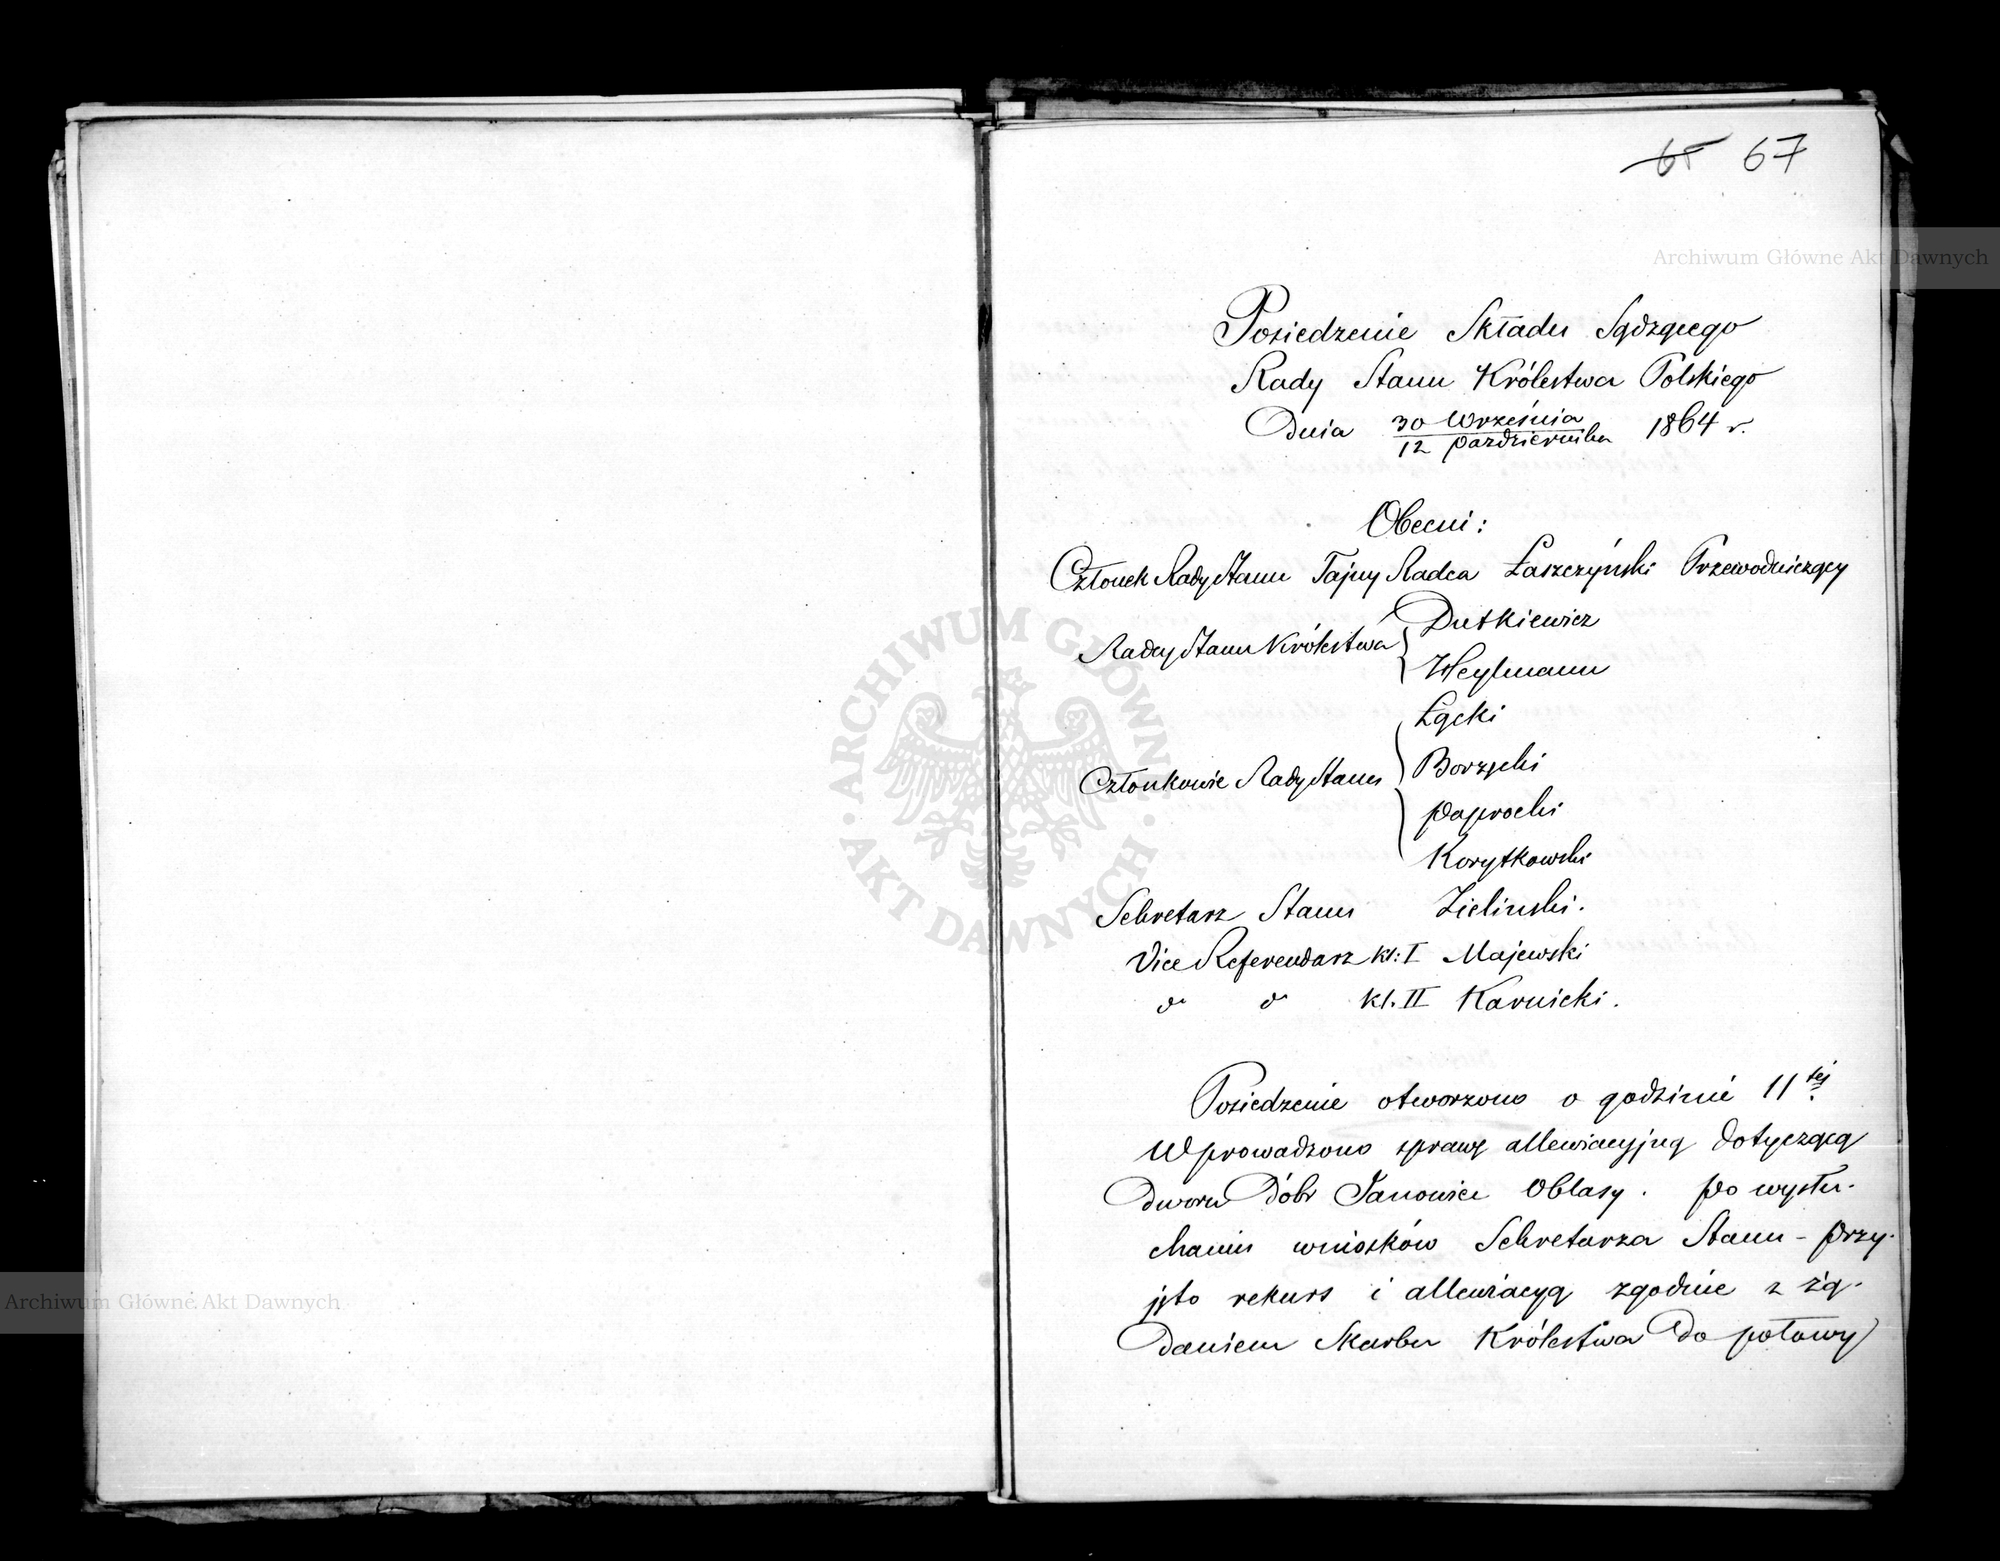 65 67
Archiwum Główne Akt Dawnych
Posiedzenie Składu Sądzącego
Rady Stanu Królestwa Polskiego
Dnia 30 Września / 12 Października 1864 r.
Obecni:
Członek Rady Stanu Tajny Radca Łaszczyński Przewodniczący
Radcy Stanu Królestwa { Dutkiewicz
Heylmann
Łącki
Członkowie Rady Stanu { Borzęcki
Paprocki
Korytkowski
Sekretarz Stanu Zieliński.
Vice Referendarz kl: I Majewski
d° d° kl. II Karnicki.
Posiedzenie otworzono o godzinie 11tej
Wprowadzono sprawę allewiacyjną dotyczącą
dworu Dóbr Janowice Oblasy. Po wysłu-
chaniu wniosków Sekretarza Stanu - przy-
jęto rekurs i allewiacyą zgodnie z żą-
daniem Skarbu Królestwa do połowy
ARCHIWUM GŁÓWNE · AKT DAWNYCH ·
Archiwum Główne Akt Dawnych